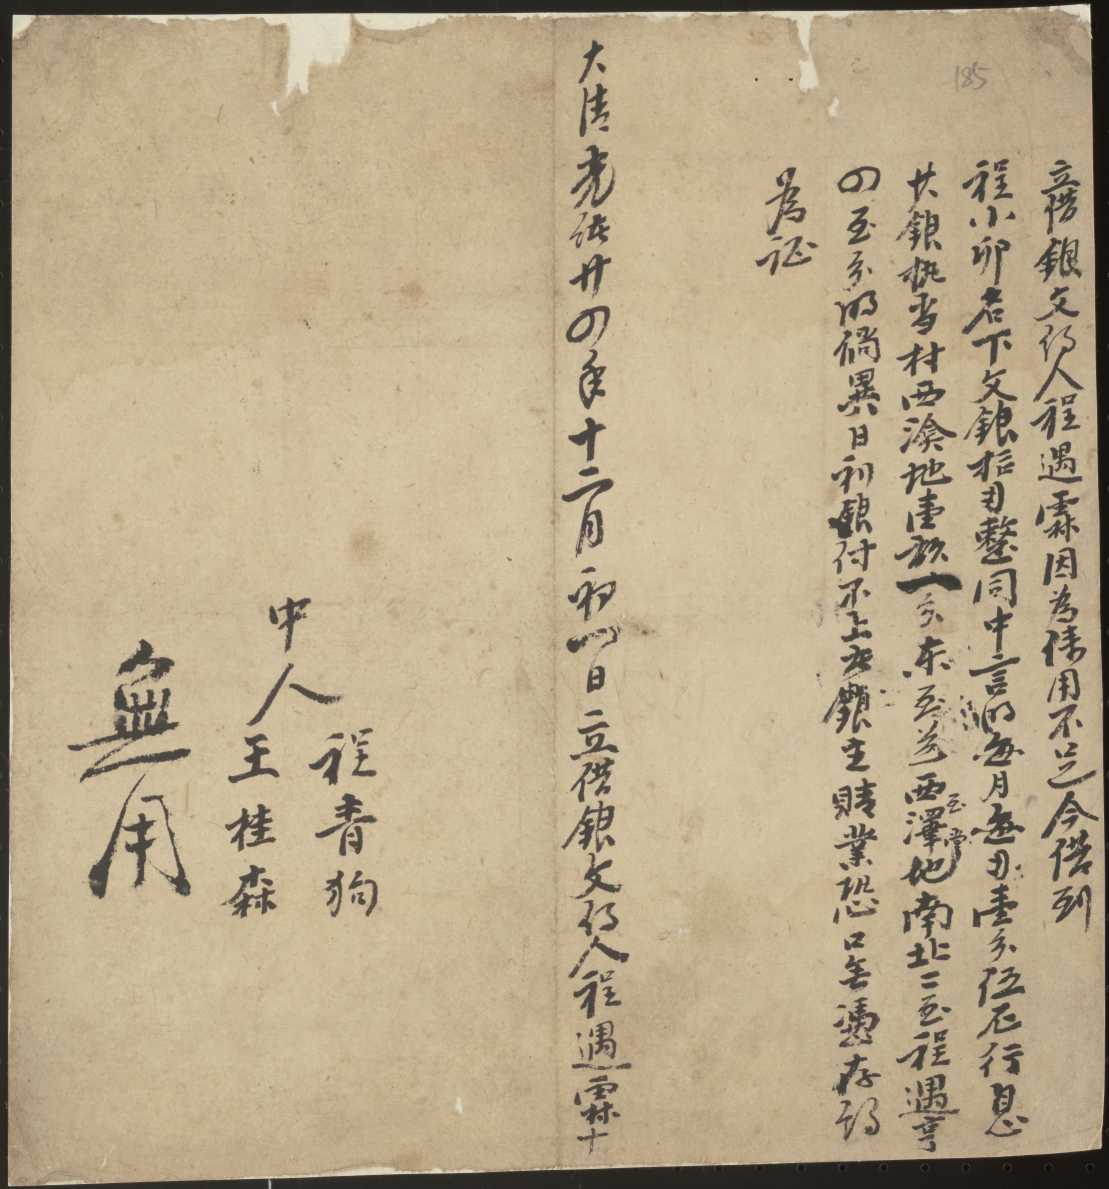 185
立借銀文約人程遇霖因為使用不足今借到
程小卯名下文銀拾兩整同中言明每月每兩壹分伍厘行息
其銀執當村西淤地壹段一分東至道西至常澤地南北二至程遇亨
四至分明倘異日利銀付不上由銀主賍業恐口無憑存約
為証
大清光緒廿四年十二月初一日立借銀文約人程遇霖十
中人
程青狗
王桂森
無用